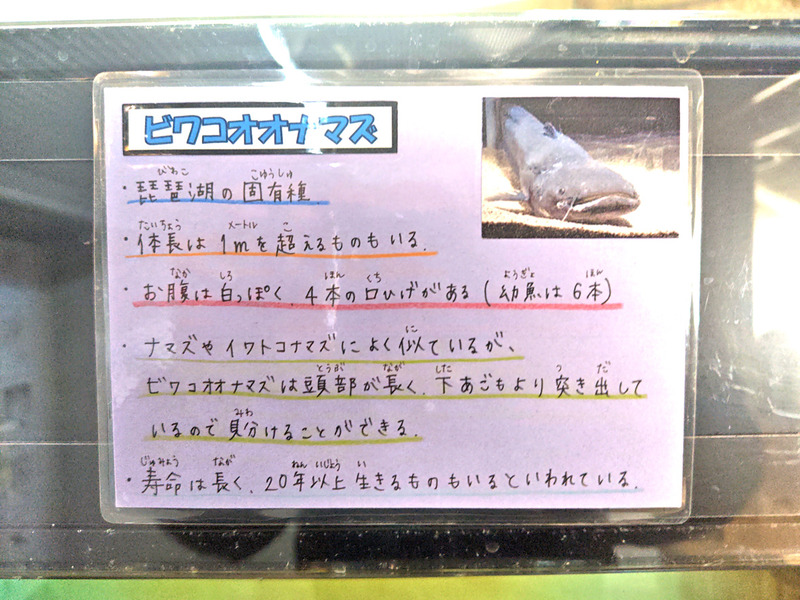 ビワコオオナマズ
・琵琶湖の固有種.
・体長は1mを超えるものもいる.
・お腹は白っぽく、4本の口ひげがある(幼魚は6本)
・ナマズやイワトコナマズによく似ているが、
ビワコオオナマズは頭部が長く、下あごもより突き出して
いるので見分けることができる.
・寿命は長く、20年以上生きるものもいるといわれている.